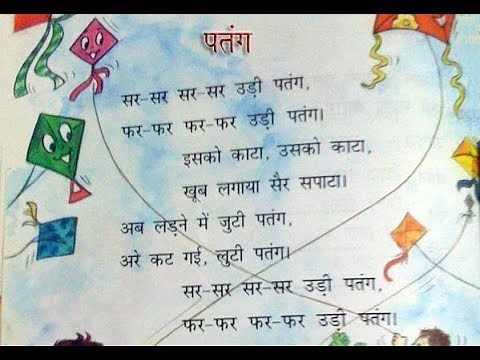 पतंग
सर-सर सर-सर उड़ी पतंग,
फर-फर फर-फर उड़ी पतंग।
इसको काटा, उसको काटा,
खूब लगाया सैर सपाटा।
अब लड़ने में जुटी पतंग,
अरे कट गई, लुटी पतंग।
सर-सर सर-सर उड़ी पतंग,
फर-फर फर-फर उड़ी पतंग।